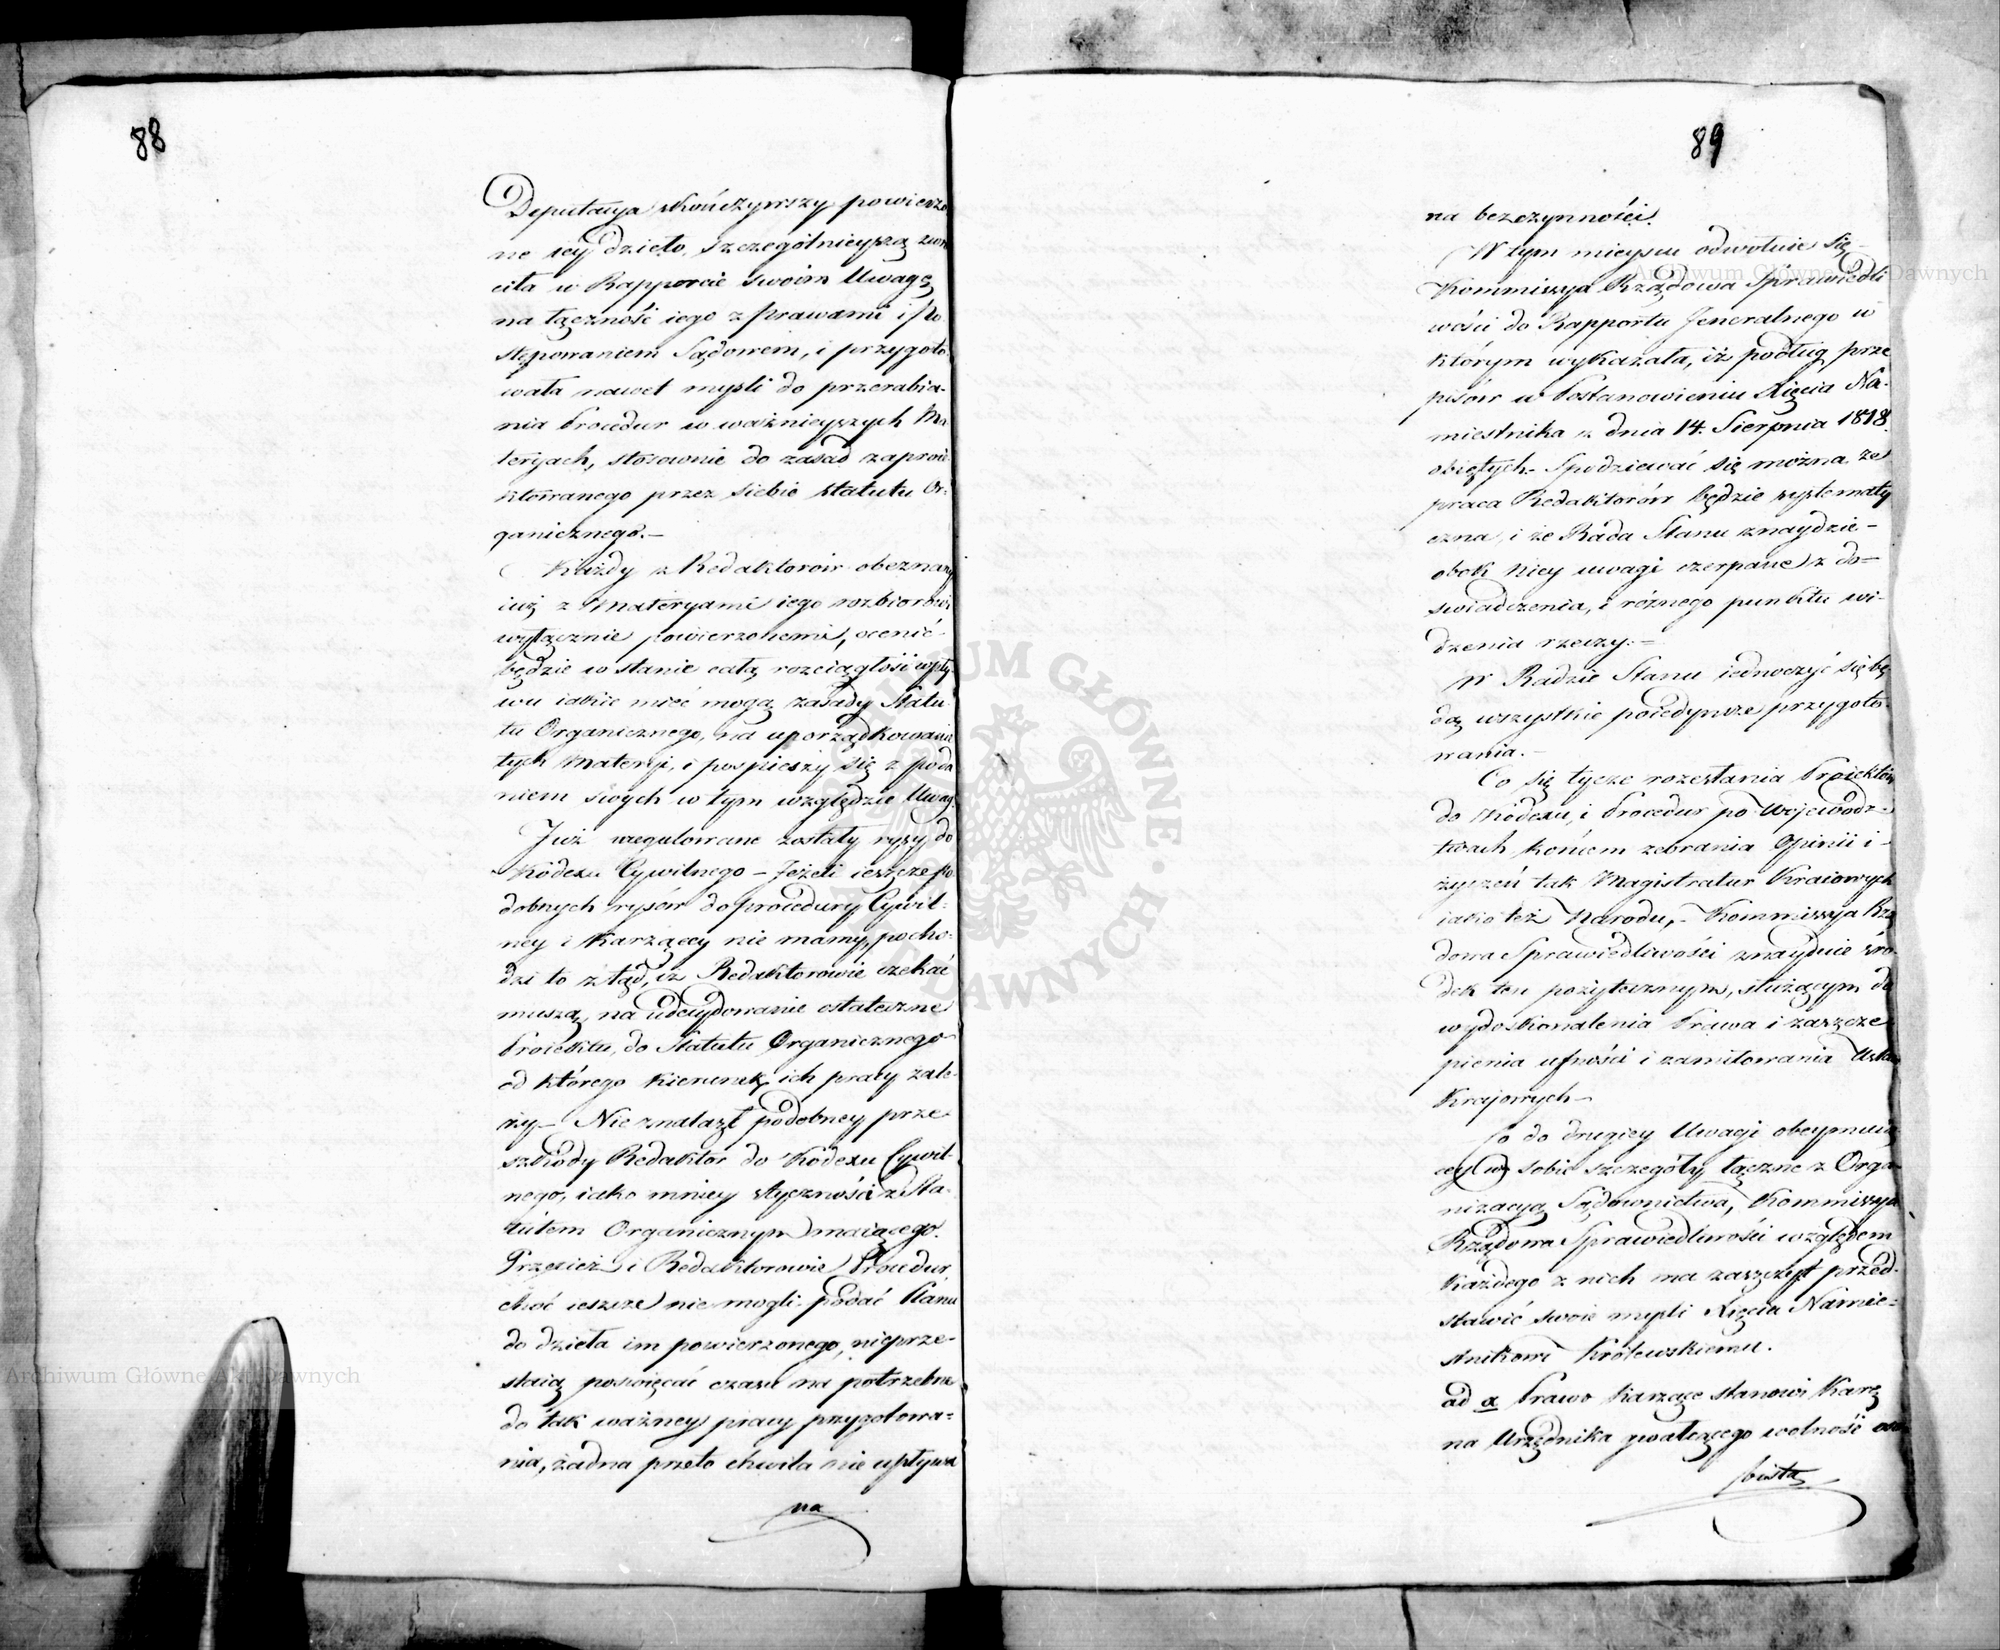 88
Deputacya skończywszy powierzo
ne iey dzieło, szczególnieyszą zwró
ciła w Rapporcie swoim Uwagę
na łączność iego z prawami i po
stępowaniem Sądowem, i przygoto
wała nawet myśli do przerabia-
nia Procedur w ważnieyszych Ma
teryach, stosownie do zasad zaproie
ktowanego przez siebie Statutu Or-
ganicznego.—
Każdy z Redaktorów obeznany
iuż z Materyami iego rozbiorowi
wyłącznie powierzonemi, ocenić
będzie w stanie całą rozciągłość wpły
wu iakie mieć mogą zasady Statu
tu Organicznego, na uporządkowanie
tych Materyi, i pospieszy się z poda
niem swych w tym względzie Uwag.
Już uregulowane zostały rysy do
Kodexu Cywilnego — Jeżeli ieszcze po
dobnych rysów do procedury Cywil-
ney i Karzącey nie mamy, pocho-
dzi to ztąd, iż Redaktorowie czekać
muszą, na udecydowanie ostateczne
Proiektu, do Statutu Organicznego
od którego kierunek ich pracy zale-
ży — Nie znalazł podobney prze
szkody Redaktor do Kodexu Cywil-
nego, iako mniey styczności z Sta-
tutem Organicznym maiącego.
Przecież i Redaktorowie Procedur,
choć ieszcze nie mogli podać Planu
do dzieła im powierzonego, nieprze-
staią poświęcać czasu na potrzebne
do tak ważney pracy przygotowa-
nia, żadna przeto chwila nie upływa
na
89
na bezczynności.
W tym mieyscu odwołuie się
Kommissya Rządowa Sprawiedli
wości do Rapportu Jeneralnego w
którym wykazała, iż podług prze
pisów w Postanowieniu Xięcia Na-
miestnika z dnia 14. Sierpnia 1818.
obiętych – Spodziewać się można że
praca Redaktorów będzie systematy
czna, i że Rada Stanu znaydzie –
obok niey uwagi czerpane z do-
świadczenia, i różnego punktu wi-
dzenia rzeczy.–
W Radzie Stanu iednoczyć się bę
dą wszystkie poiedyncze przygoto-
wania.–
Co się tycze rozesłania Proiektów
do Kodexu, i Procedur po Wojewódz-
twach końcem zebrania Opinii i –
życzeń tak Magistratur Kraiowych
iako też Narodu,– Kommissya Rzą
dowa Sprawiedliwości znayduie śro-
dek ten pożytecznym, służącym do
wydoskonalenia Prawa i zaszcze
pienia ufności i zamiłowania Ustaw
Krajowych –
Co do drugiey Uwagi obeymuią
cey w sobie szczegóły łączne z Orga-
nizacyą Sądownictwa, Kommissya
Rządowa Sprawiedliwości względem
każdego z nich ma zaszczyt przed-
stawić swoie myśli Xięciu Namie-
stnikowi Królewskiemu.
ad a Prawo karzące stanowi karę
na Urzędnika gwałcącego wolność oso
bistą
Archiwum Główne Akt Dawnych